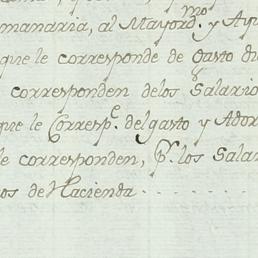 manaria, al Mayord.mo y Ayu
que le corresponde de Gasto di
corresponden de los Salario
que le Corresp.e del gasto y Ador
le corresponden, p.r los Salar
os de Hacienda